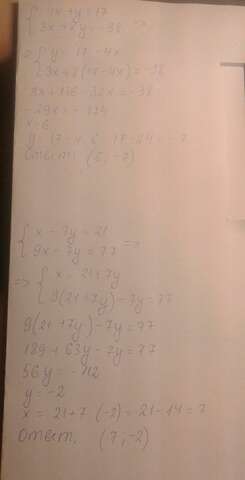 4x + y = 17
3x + 8y = -38 =>
=> y = 17 - 4x
3x + 8(17 - 4x) = -38
3x + 136 - 32x = -38
-29x = -174
x = 6
y = 17 - 4·6 = 17 - 24 = -7
Ответ: (6, -7)
x - 7y = 21
9x - 7y = 77 =>
=> x = 21 + 7y
9(21 + 7y) - 7y = 77
9(21 + 7y) - 7y = 77
189 + 63y - 7y = 77
56y = -112
y = -2
x = 21 + 7·(-2) = 21 - 14 = 7
Ответ: (7, -2)